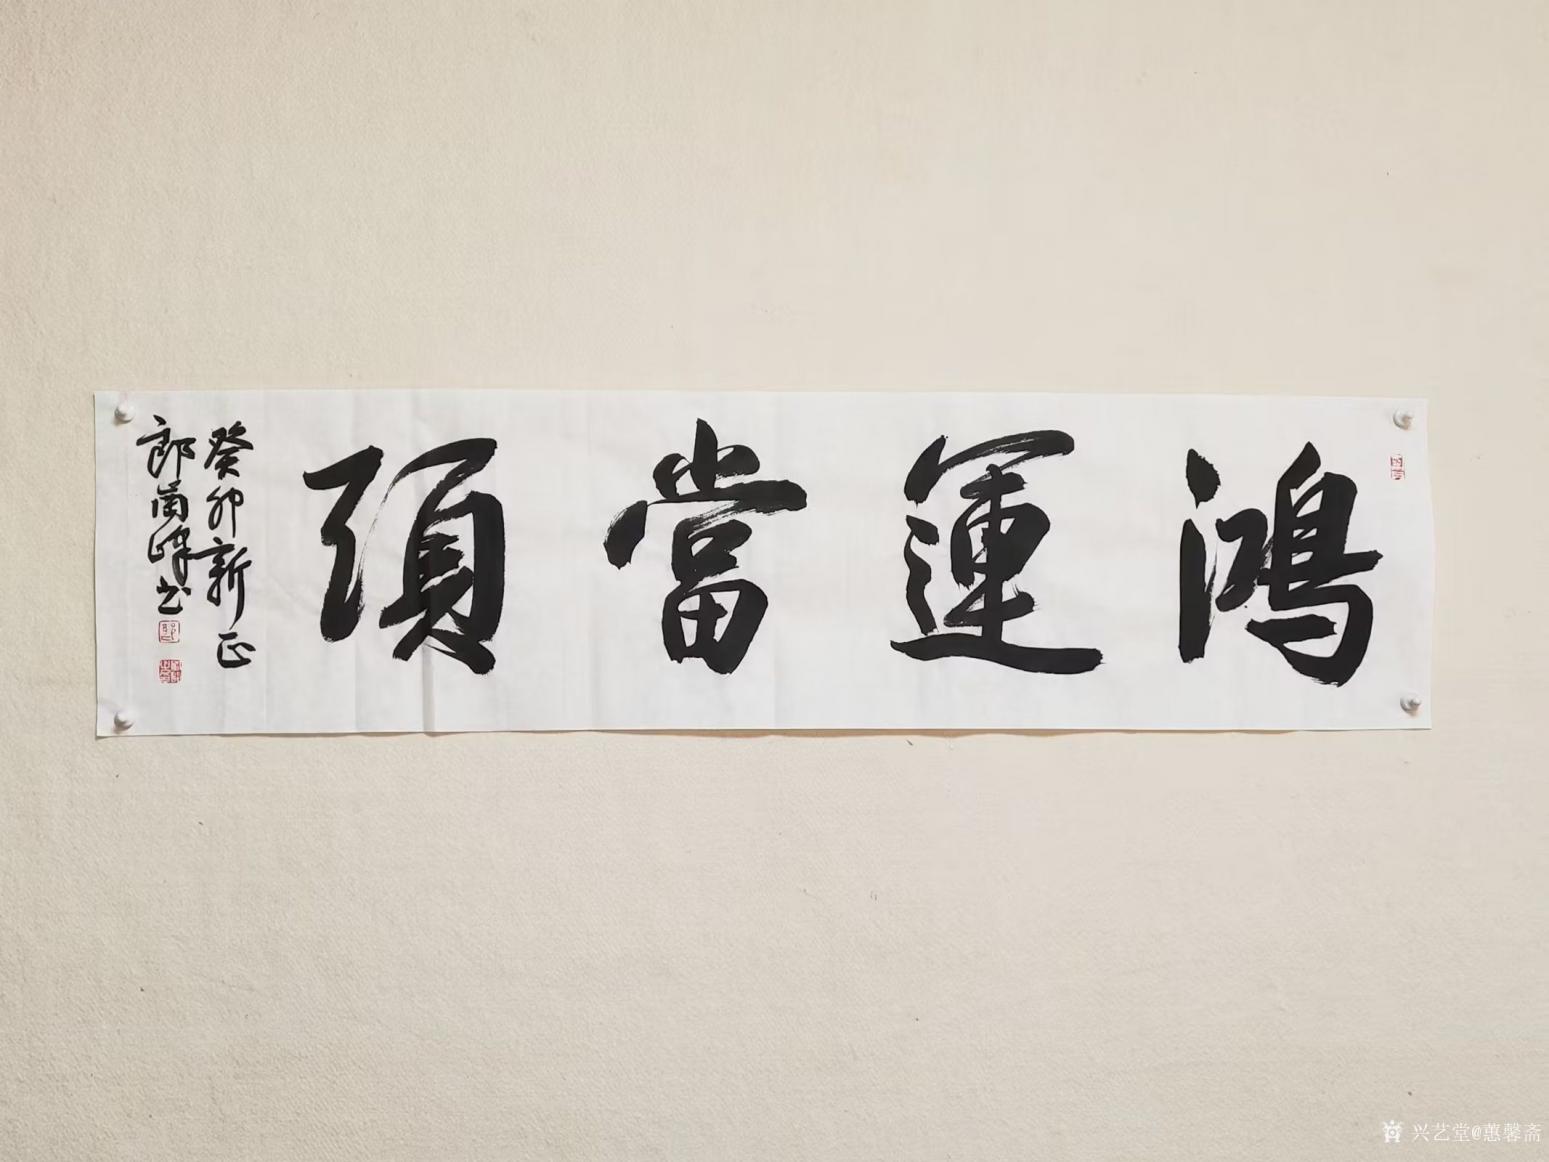 鴻運當頭
癸卯新正
郎峰书
兴艺堂@蕙馨斋